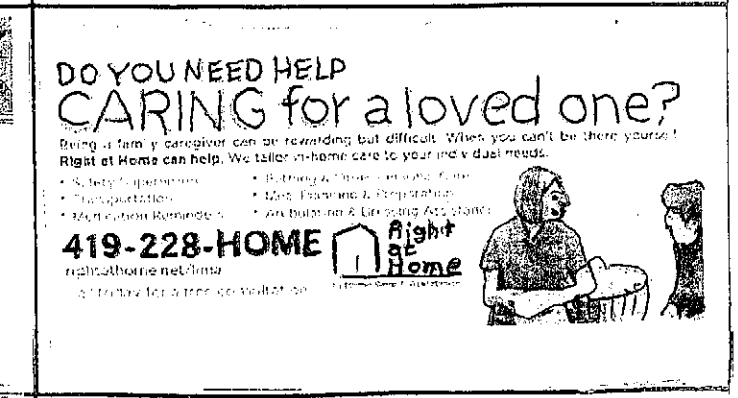 DO YOU NEED HELP
CARING for a loved one?
Being a family caregiver can be rewarding but difficult. When you can't be there yourself
Right at Home can help. We tailor in-home care to your individual needs.
• Safety Supervision
• Transportation
• Medication Reminders
• Bathing &
• Meal Planning & Preparation
• Ambulation & Dressing Assistance
419-228-HOME
rightathome.net/lima
Right
at
Home
today for a free consultation